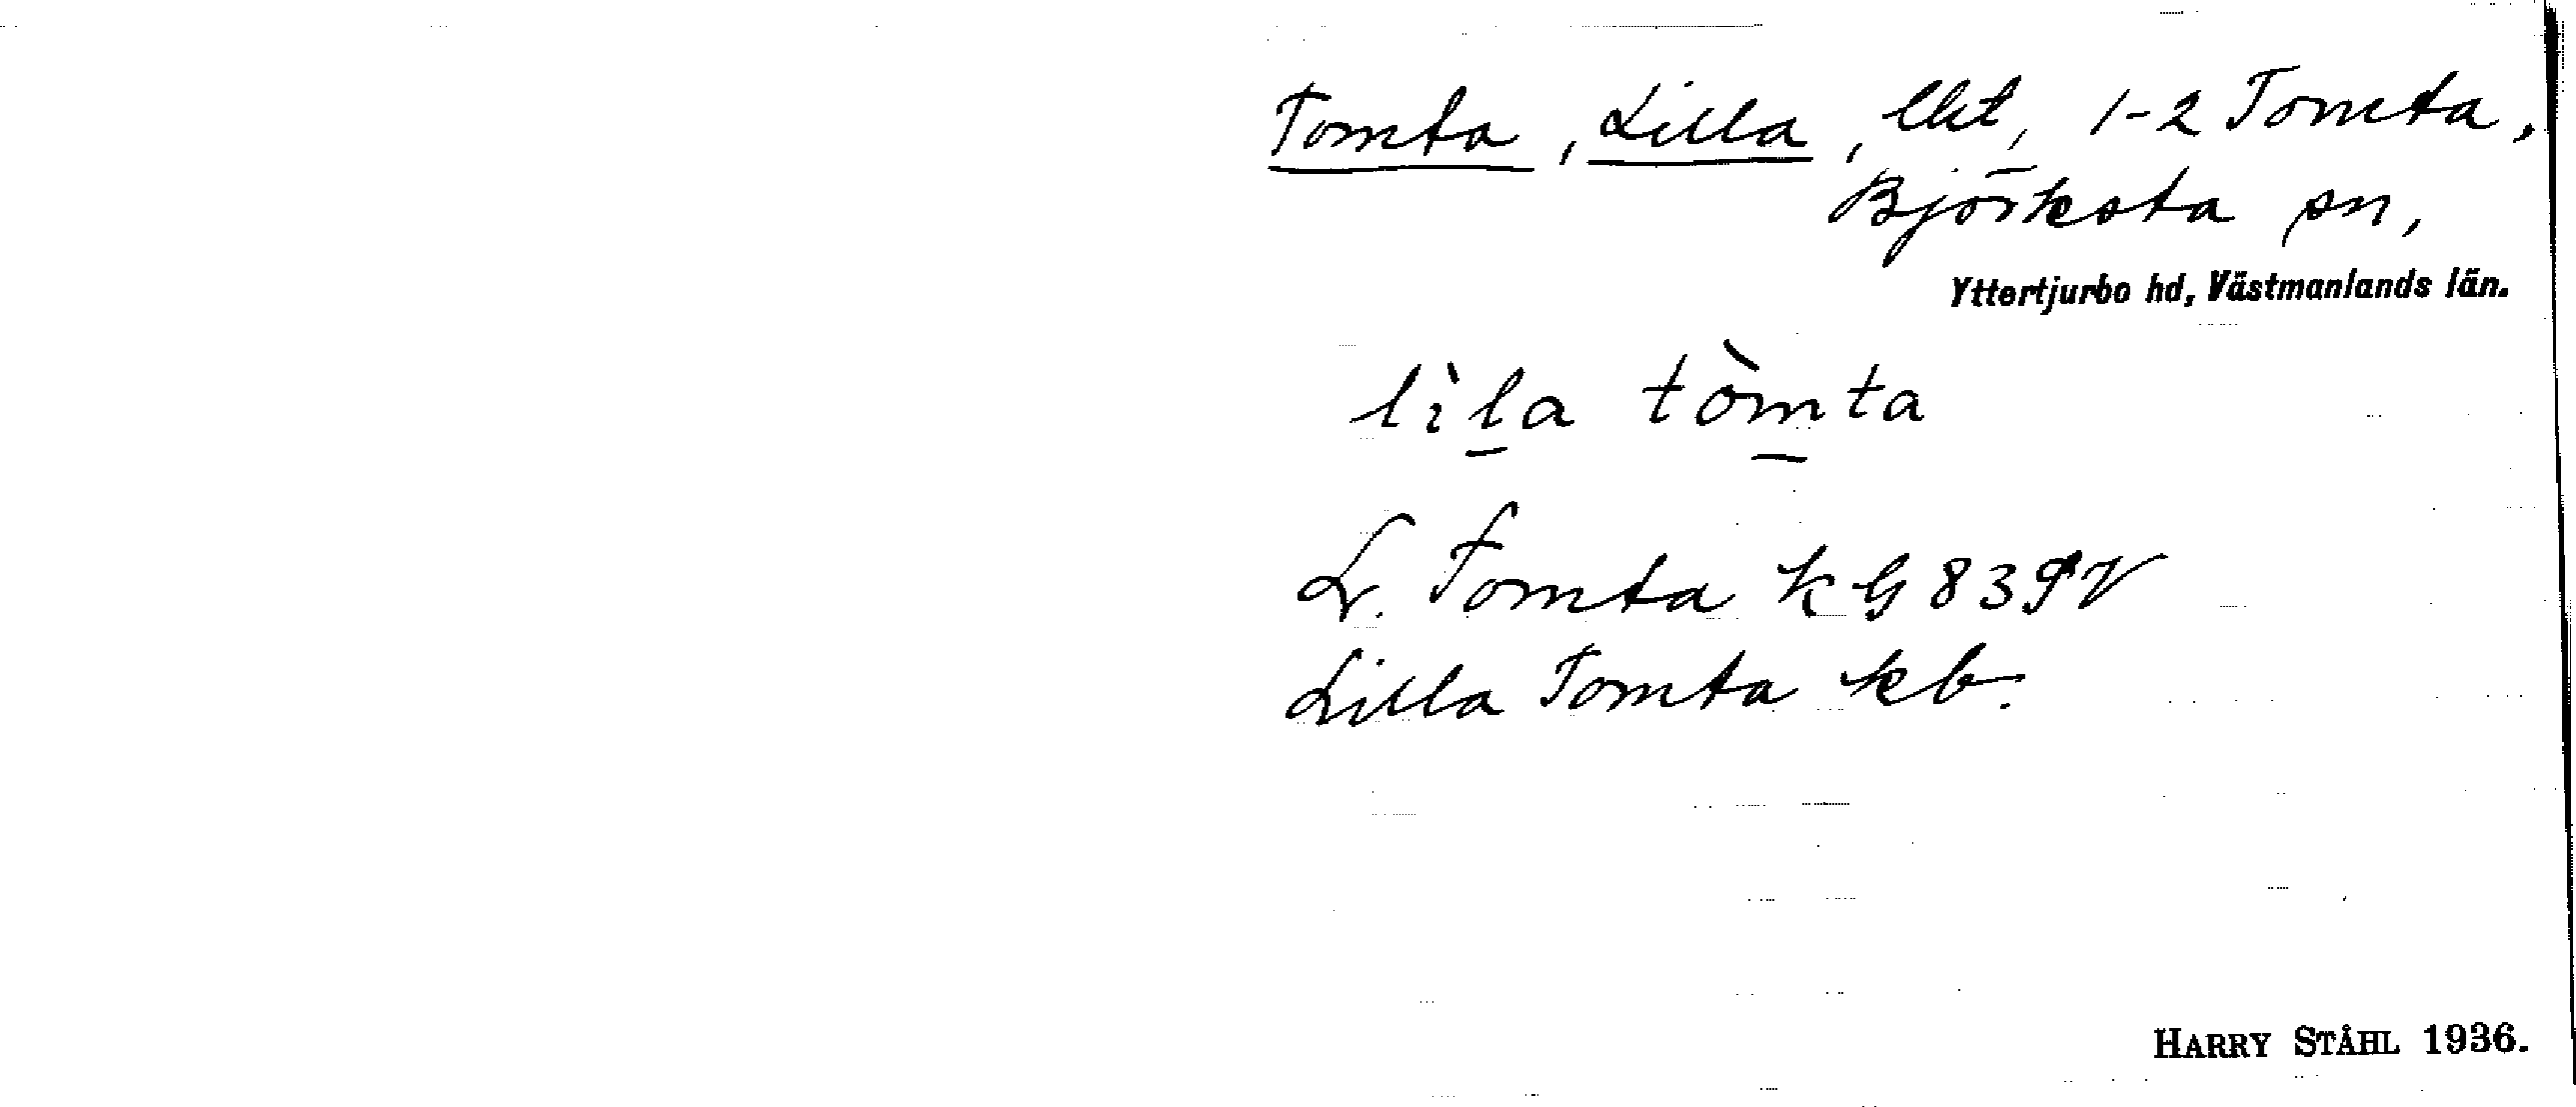 Tomta, Lilla, lht, 1-2 Tomta,
Björksta sn,
Yttertjurbo hd, Västmanlands län.
lìla tòmta
L. Tomta k G 839 V
Lilla Tomta kb.
HARRY STÅHL 1936.